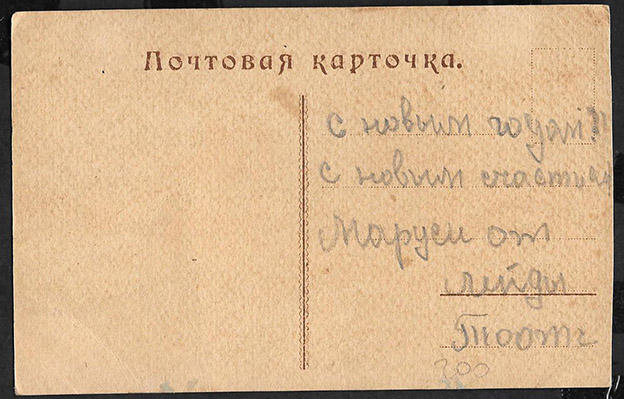 Почтовая карточка.
с новым годам!!
с новым счастием
Маруси от
лейды
Тоотс
200